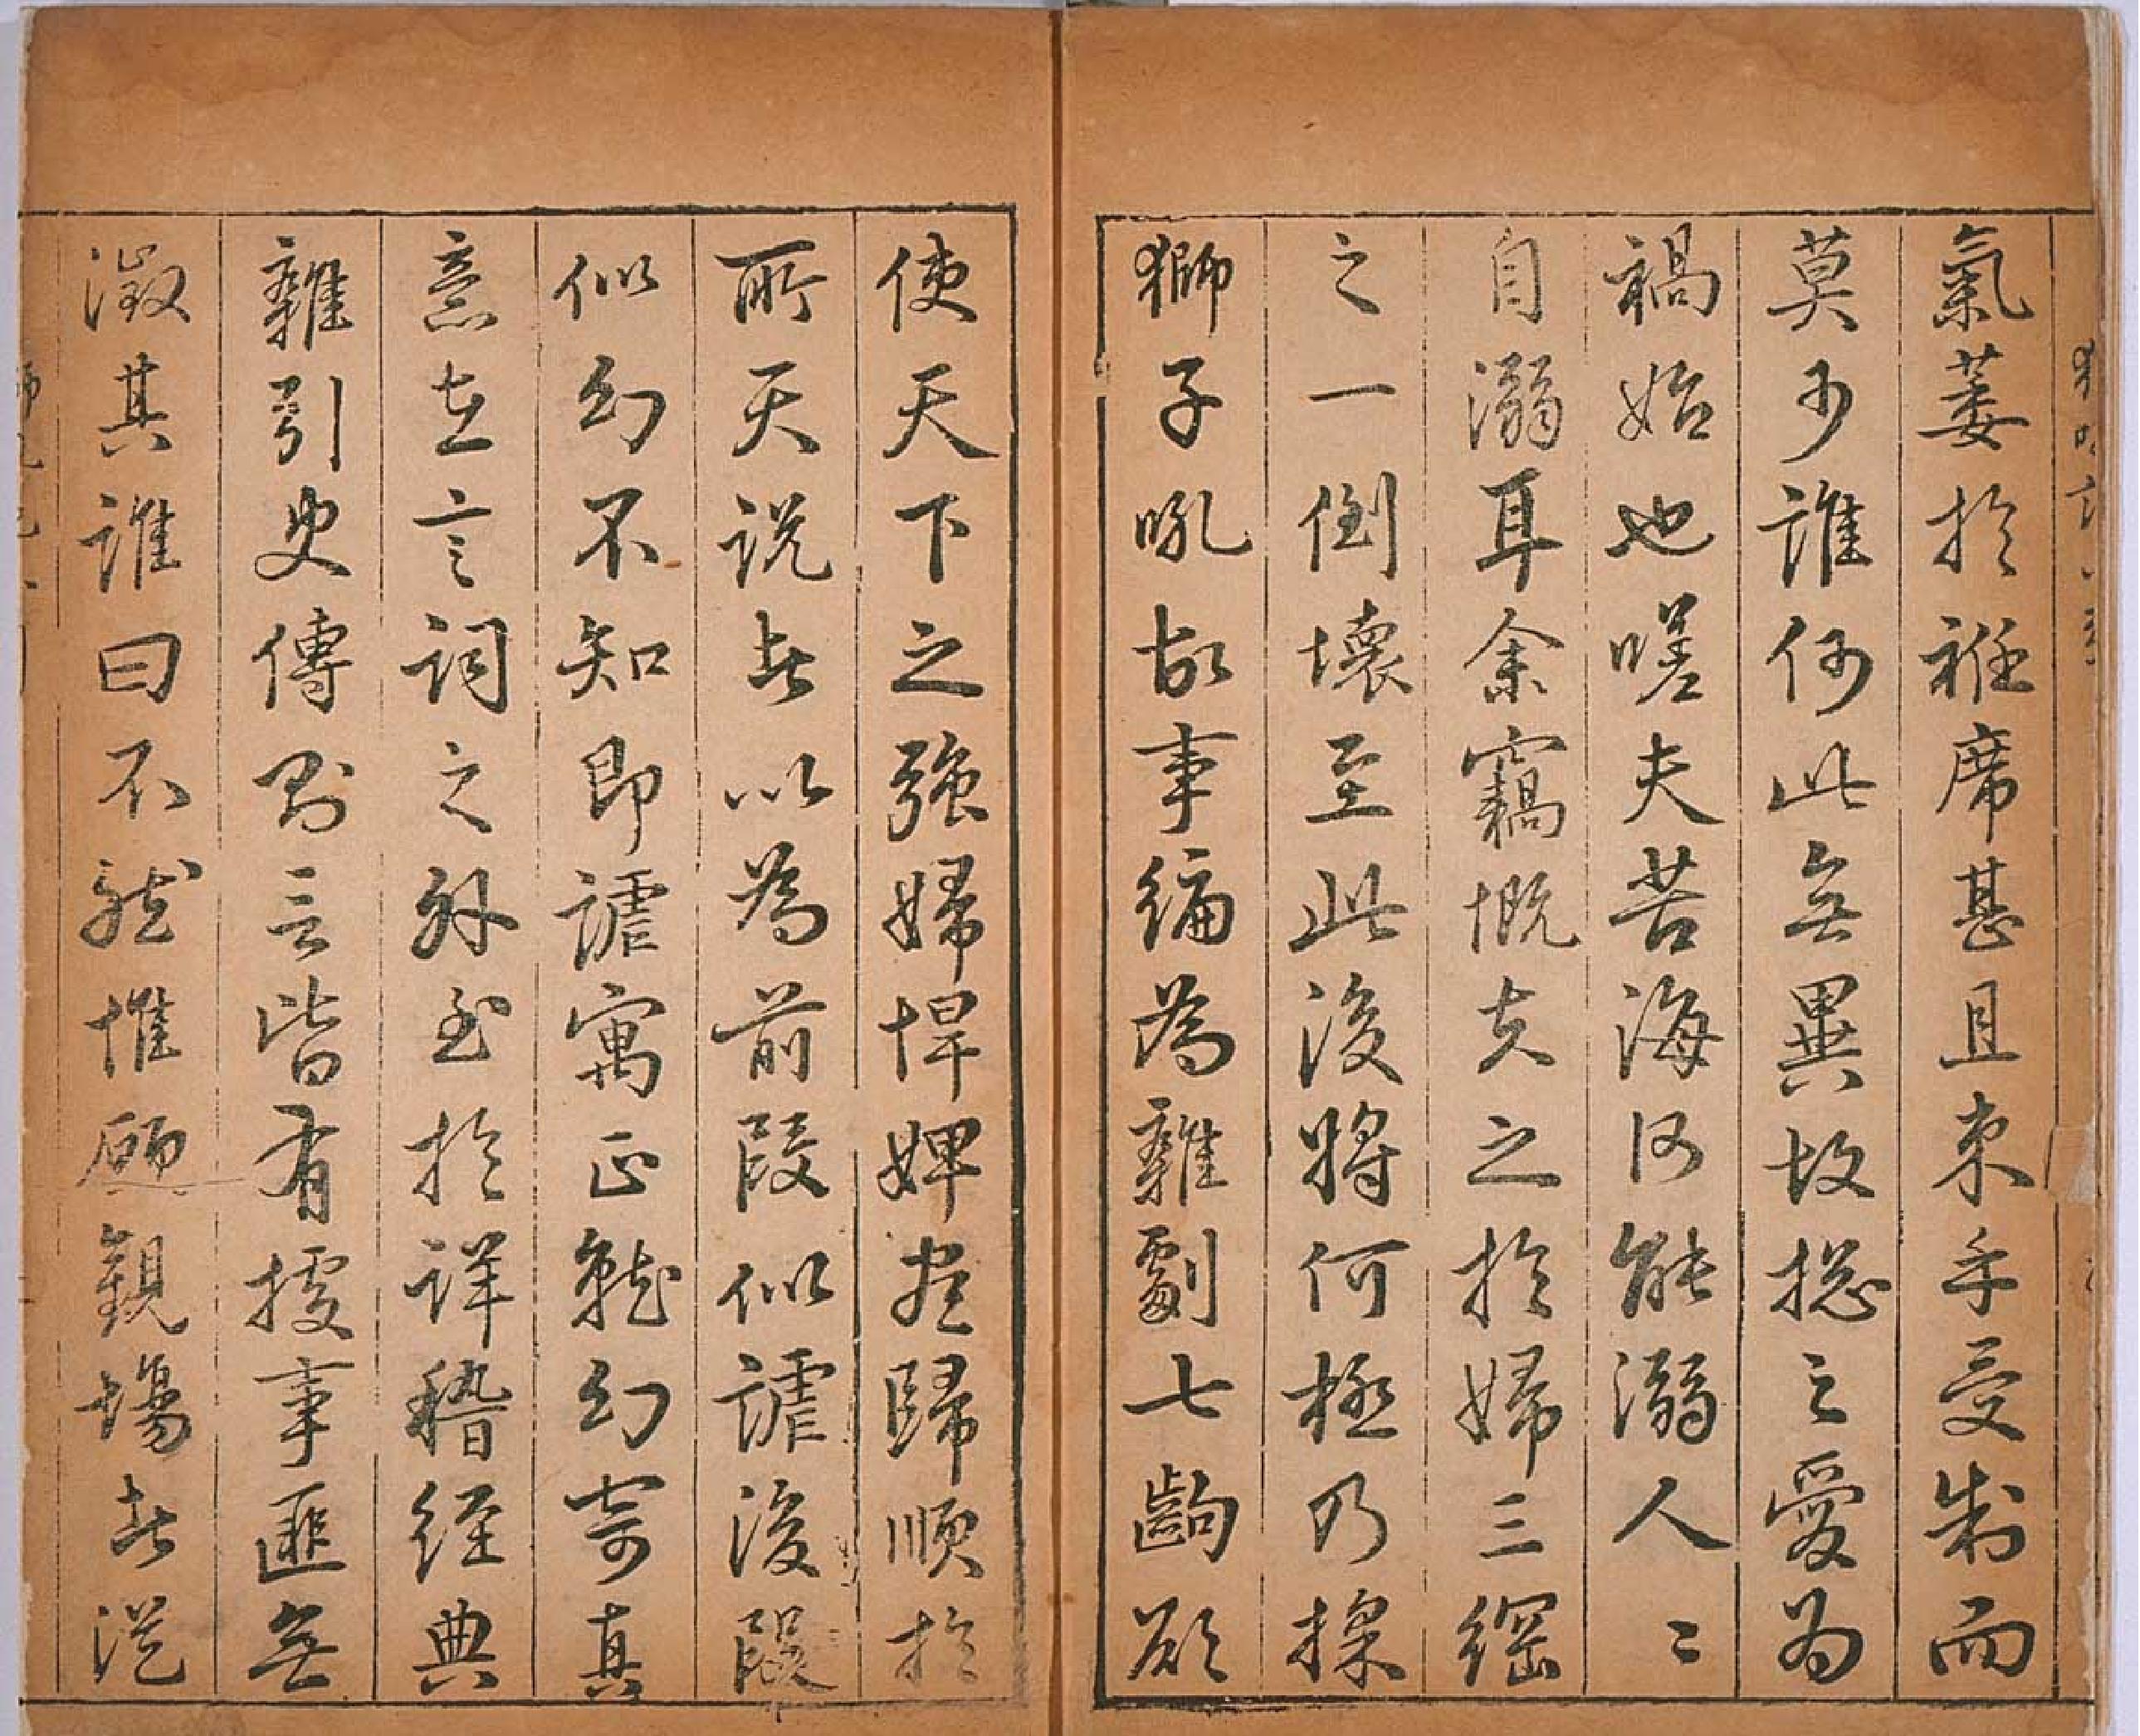 氣萎於袵席甚且束手受制而
莫可誰何此無異故總之愛為
禍始也嗟夫苦海何能溺人〻
自溺耳余竊慨夫之於婦三綱
之一倒壞至此後將何極乃採
獅子吼故事編為雜劇七齣願
使天下之強婦悍婢盡歸順於
所天説者以為前段似謔後段
似幻不知即謔寓正就幻寄真
意在言詞之外至於詳稽經典
雜引史傳則言皆有據事匪無
澂其誰曰不然惟願觀場者從